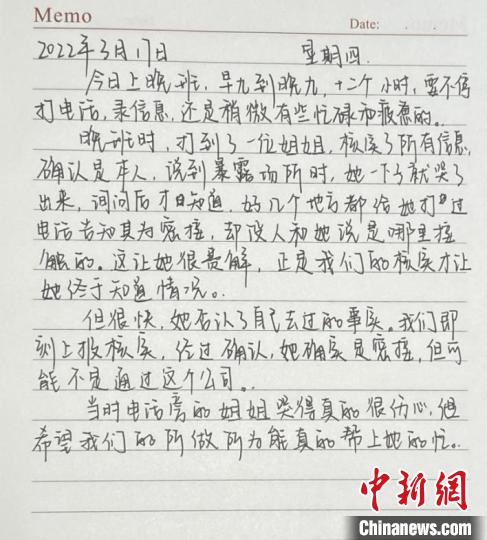 Memo
Date:
2022年3月17日 星期四
今日上晚班,早九到晚九,十二个小时,要不停
打电话,录信息,还是稍微有些忙碌和疲惫的。
晚班时,打到了一位姐姐,核实了所有信息,
确认是本人,说到暴露场所时,她一下子就哭了
出来,询问后才知道,好几个地方都给她打过
电话告知其为密接,却没人和她说是哪里接
触的。这让她很费解,正是我们的核实才让
她终于知道情况。
但很快,她否认了自己去过的事实。我们即
刻上报核实,经过确认,她确实是密接,但可
能不是通过这个公司。
当时电话旁的姐姐哭得真的很伤心,但
希望我们的所做所为能真的帮上她的忙。
中新网
Chinanews.com